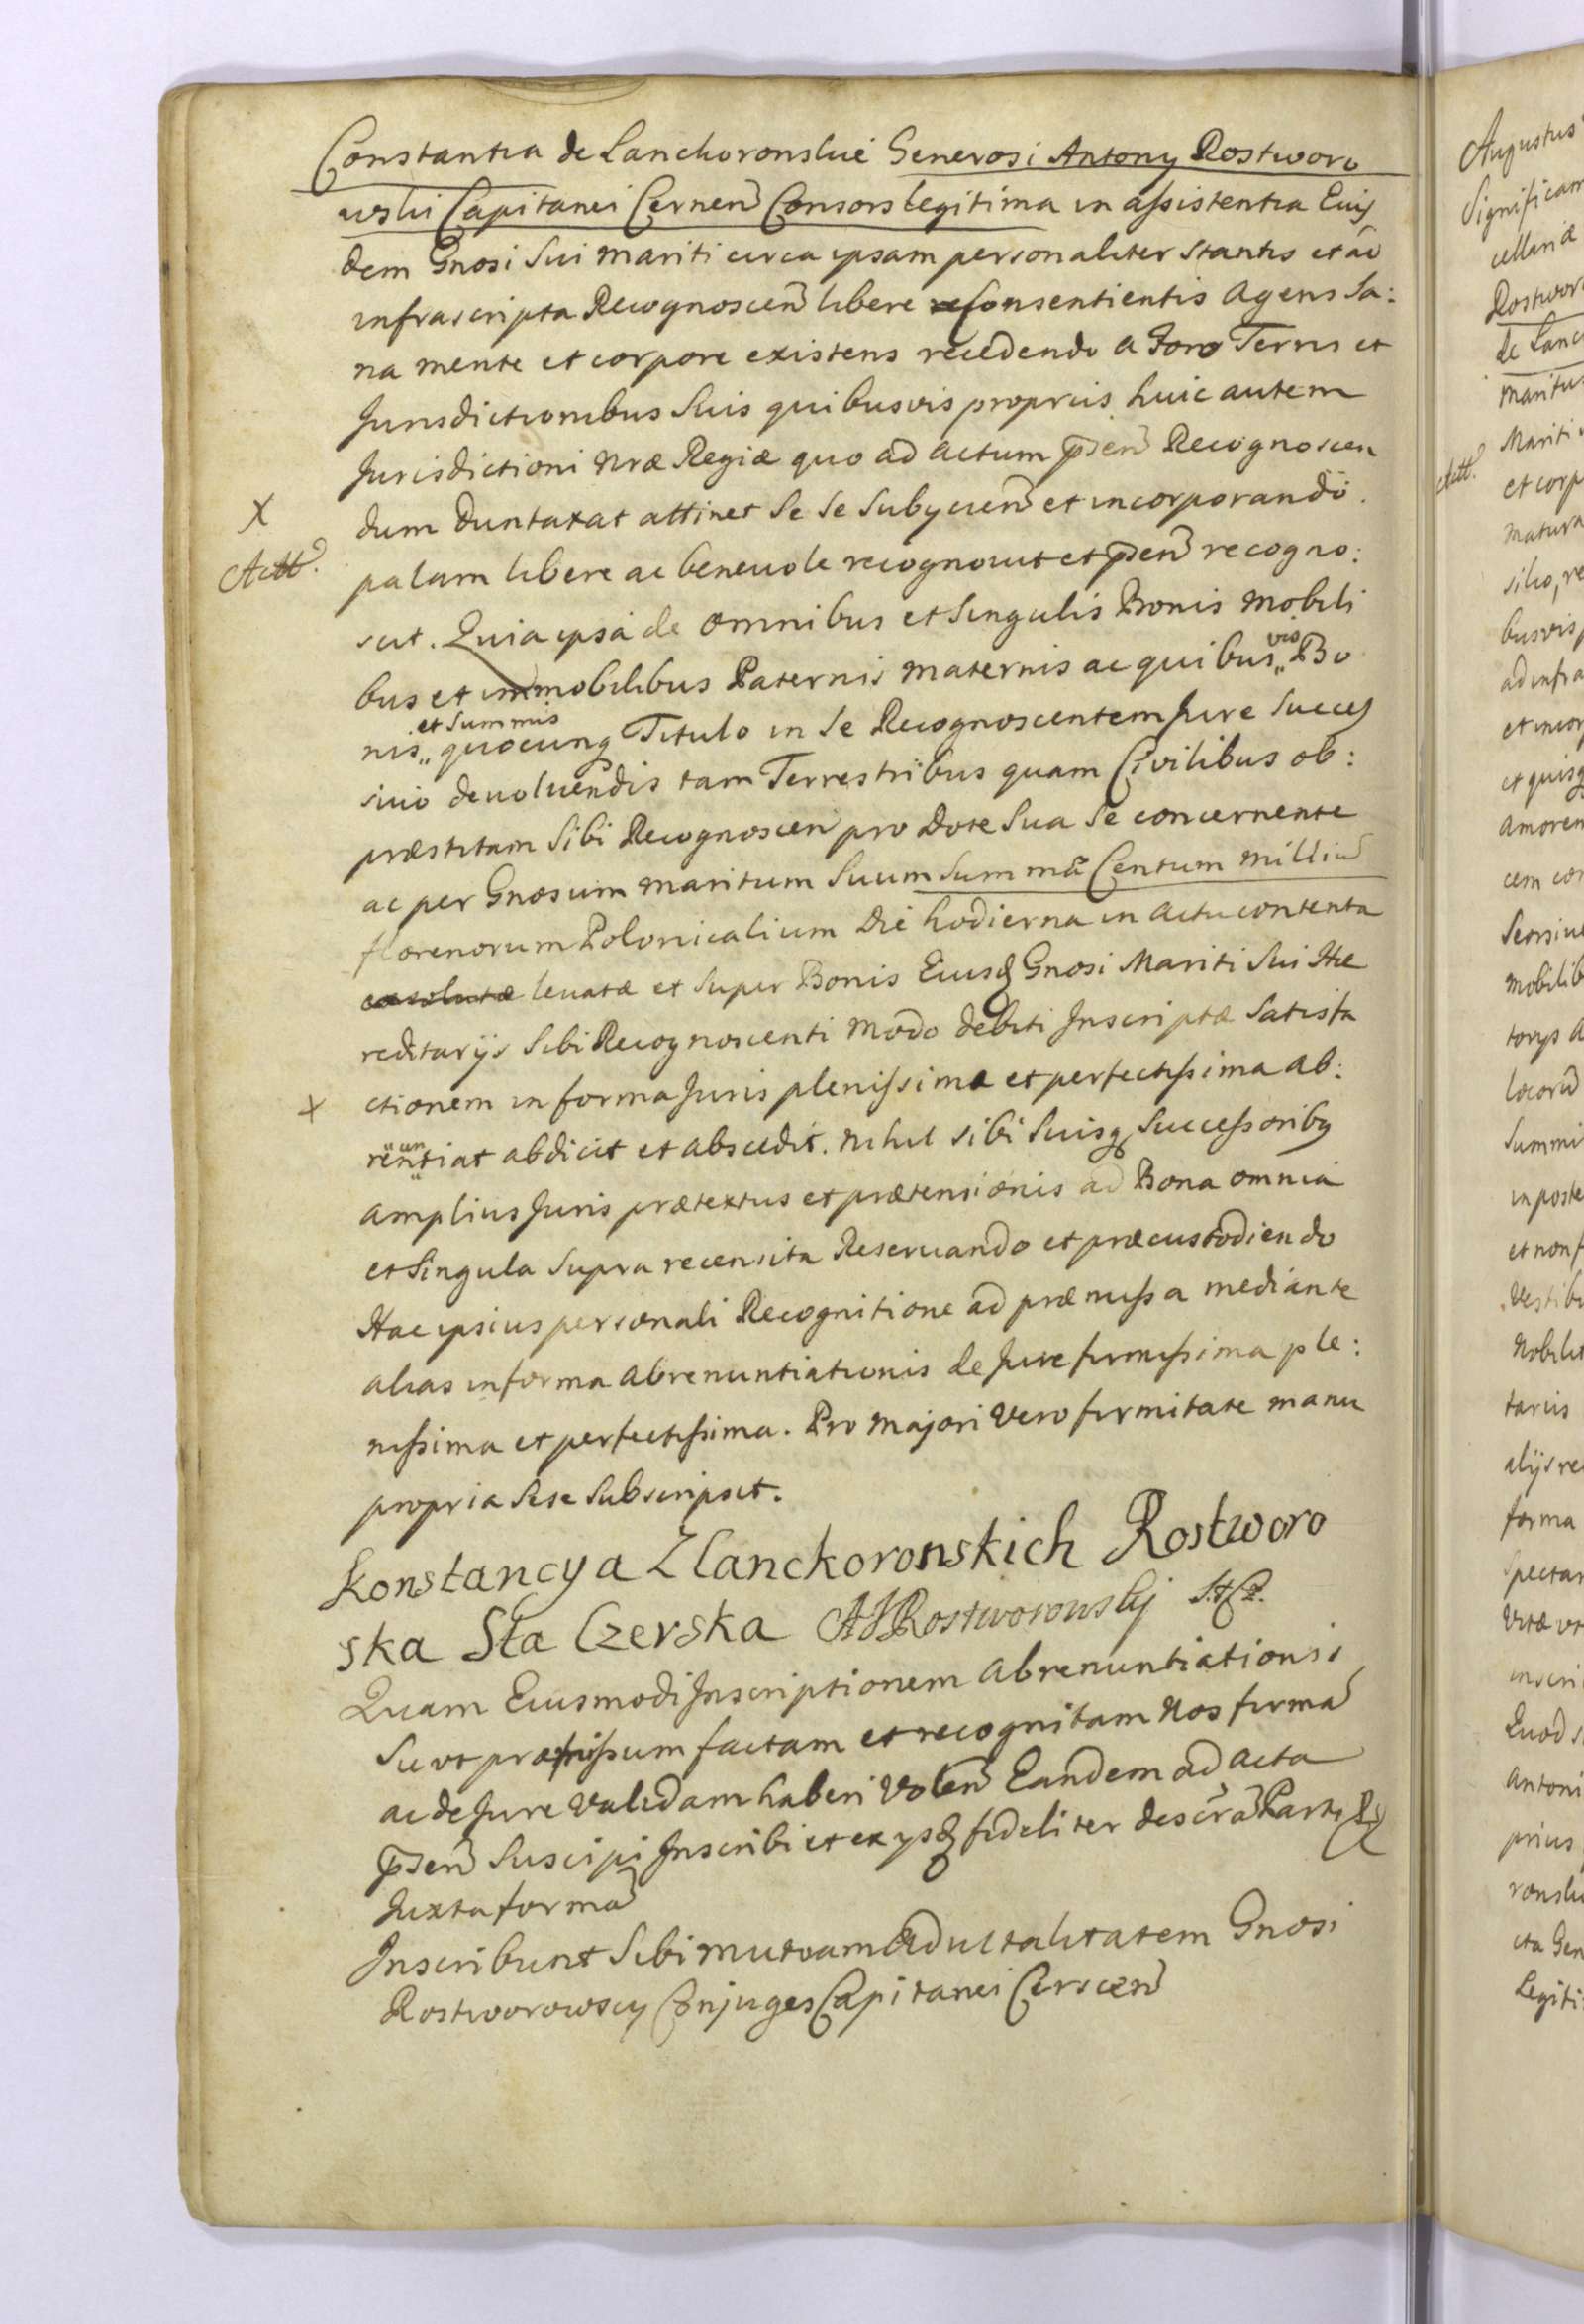 Constantia de Lanckoronskie Generosi Antony Rostworo
wski Capitanei Cernen Consors legitima in assistentia Eius
dem Gnosi Sui mariti circa ipsam personaliter stantis et ad
infrascripta Recognoscen libere consentientis Agens Sa:
na mente et corpore existens recedendo a Foro Terris et
Jurisdictionibus Suis quibusvis propriis huic autem
Jurisdictioni Nræ Regiæ quo ad actum pñsen Recognoscen
X
dum duntaxat attinet Se Se Subycien et incorporando.
Actt.
palam libere ac beneuole recognouit et pñsen recogno:
scit. Quia ipsa de omnibus et Singulis Bonis mobili
bus et immobilibus Paternis maternis ac quibus„vis Bo
nis„ et Summis quocunq Titulo in Se Recognoscentem Jure Succes
siuo deuoluendis tam Terrestribus quam Civilibus ob:
præstitam Sibi Recognoscen pro Dote Sua Se concernente
ac per Gnosum maritum Suum Summã Centum milliũ
florenorum Polonicalium Die hodierna in actu contenta
exsolutæ leuatæ et Super Bonis Eiusd Gnosi Mariti Sui Hæ
reditarijs Sibi Recognoscenti modo debiti Inscriptæ Satisfa
X
ctionem in forma Juris plenissima et perfectissima ab:
renuntiat abdicit et abscedit. nihil sibi Suisq Successoribq
amplius Juris prætextus et prætensionis ad Bona omnia
et Singula Supra recensita Reseruando et præcustodiendo
Hac ipsius personali Recognitione ad præmissa mediante
alias in forma Abrenuntiationis de Jure firmissima ple:
nissima et perfectissima. Pro majori Vero firmitate manu
propria Sese Subscripsit.
Konstancya Zlanckoronskich Rostworo
ska Sta Czerska AJRostworowskj S.C.
Quam Eiusmodi Inscriptionem Abrenuntiationis
Su vt præmissum factam et recognitam Nos firmã
ac de Jure Validam haberi Volen Eandem ad acta
pñsen Suscipi Inscribi et ex ysd fideliter descrã Parti
Juxta formã
Inscribunt Sibi mutuam Aduitalitatem Gnosi
Rostworowscy Conjuges Capitanei Cerscen
Augustus
Significam
Rostworo
de Lanc
maritus
Mariti
Actt.
et corp
matura
silio, re
busvis
ad infra
et incor
et quisq
amorem
cem con
Seorsiue
mobilib
torys a
locorũ
Summi
in poste
et non f
Vestibu
Nobilit
tariis
alijs re
forma
Spectan
Vitæ vt
inscri
Quod s
Antoni
prius
ronski
ita Gen
Legiti